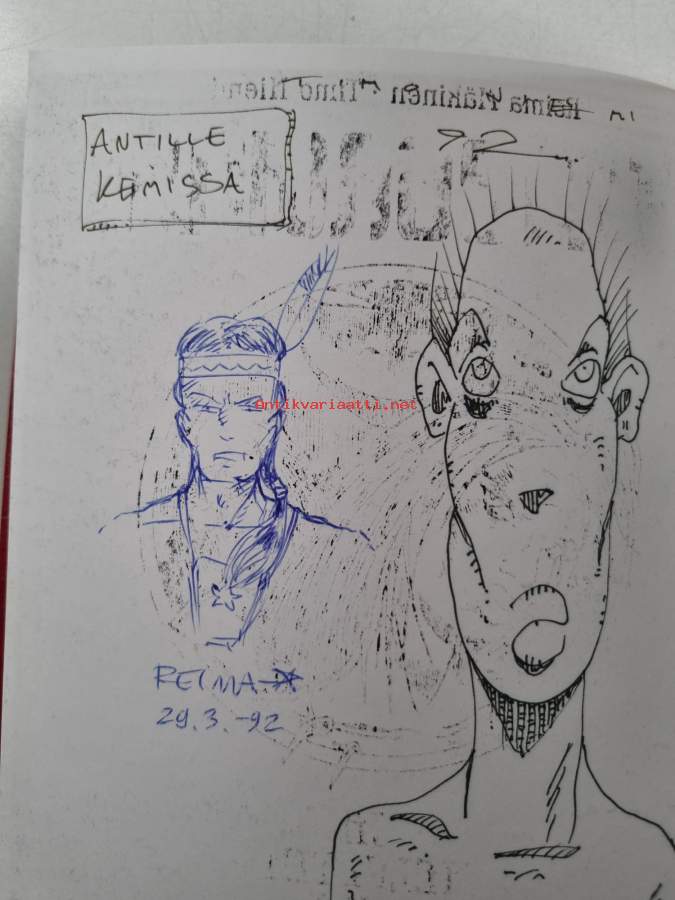 Reima Mäkinen - Timo Niemi
ANTILLE
KEMISSÄ
92
Antikvariaatti.net
REIMA
29.3.-92